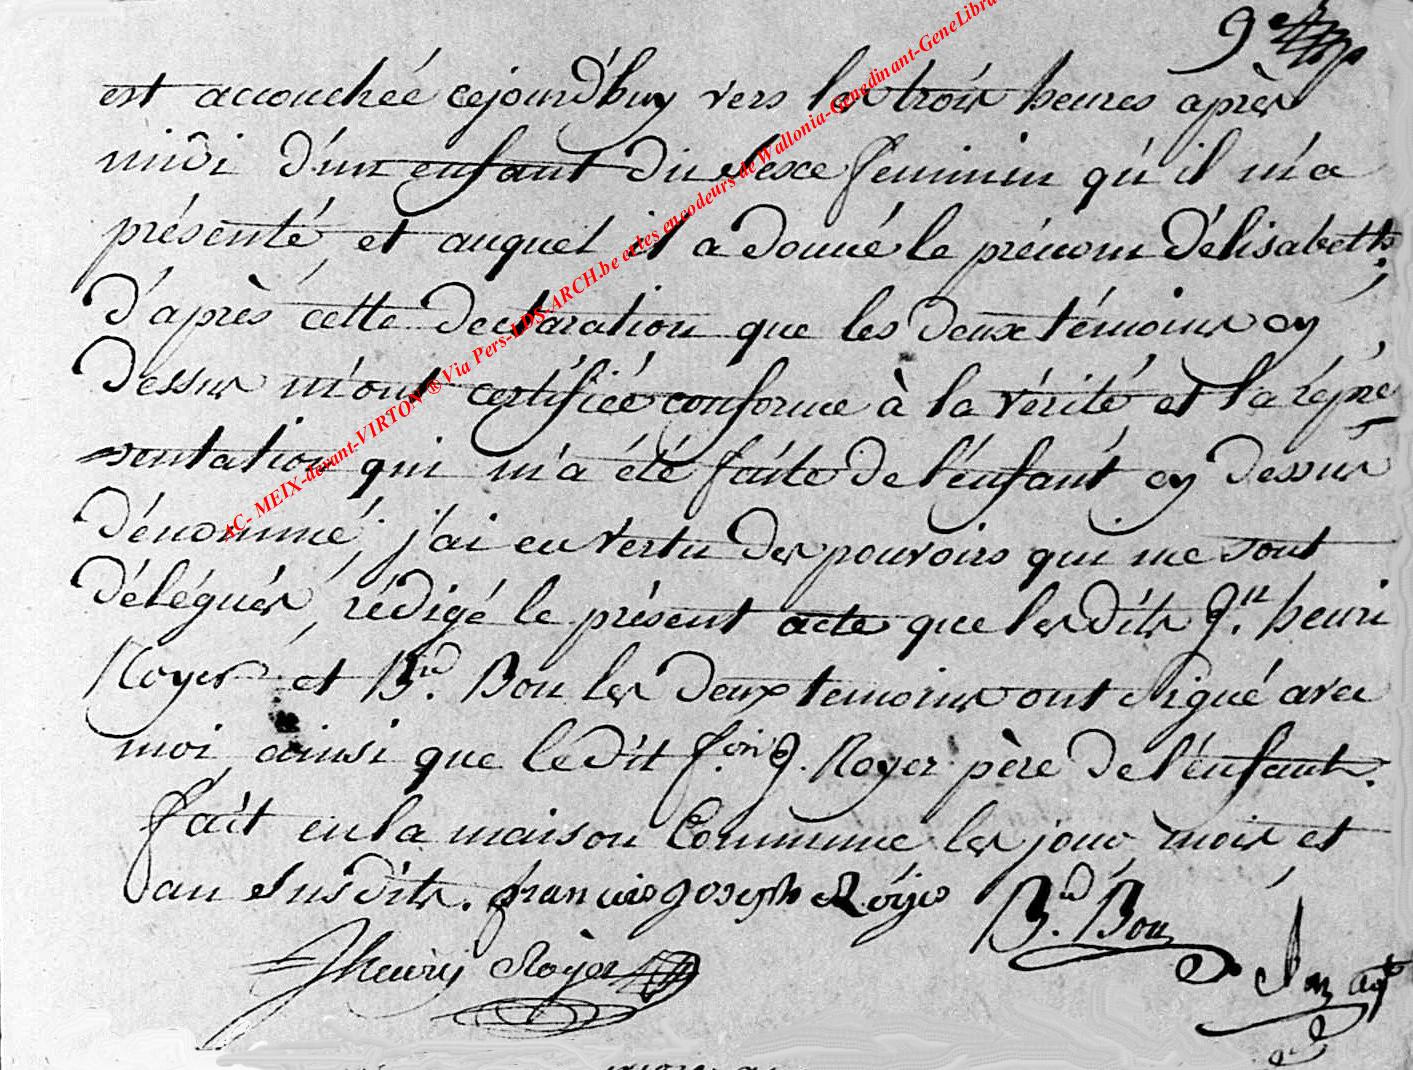 9e
est accouchée cejourd'huy vers les trois heures après
midi d'un enfant du sexe feminin qu'il m'a
présenté, et auquel il a donné le prénom d'élisabeth;
d'après cette declaration que les deux témoins cy
dessus m'ont certifiée conforme à la vérité et la répré
sentation qui m'a été faite de l'énfant cy dessus
dénommé; j'ai en vertu des pouvoirs qui me sont
délégués, rédigé le présent acte que les dits Jn. henri
Royer et Bd. Bon les deux temoins ont signé avec
moi, ainsi que le dit f.ois J. Royer père de l'énfant.
fait en la maison Commune les jour, mois et
an susdits. francois Joseph Róyer Bd. Bon
Jhenry Royer
sC- MEIX-devant-VIRTON ® Via Pers-LDS-ARCH.be et les encodeurs de Wallonia-Genedinant-GeneLibra